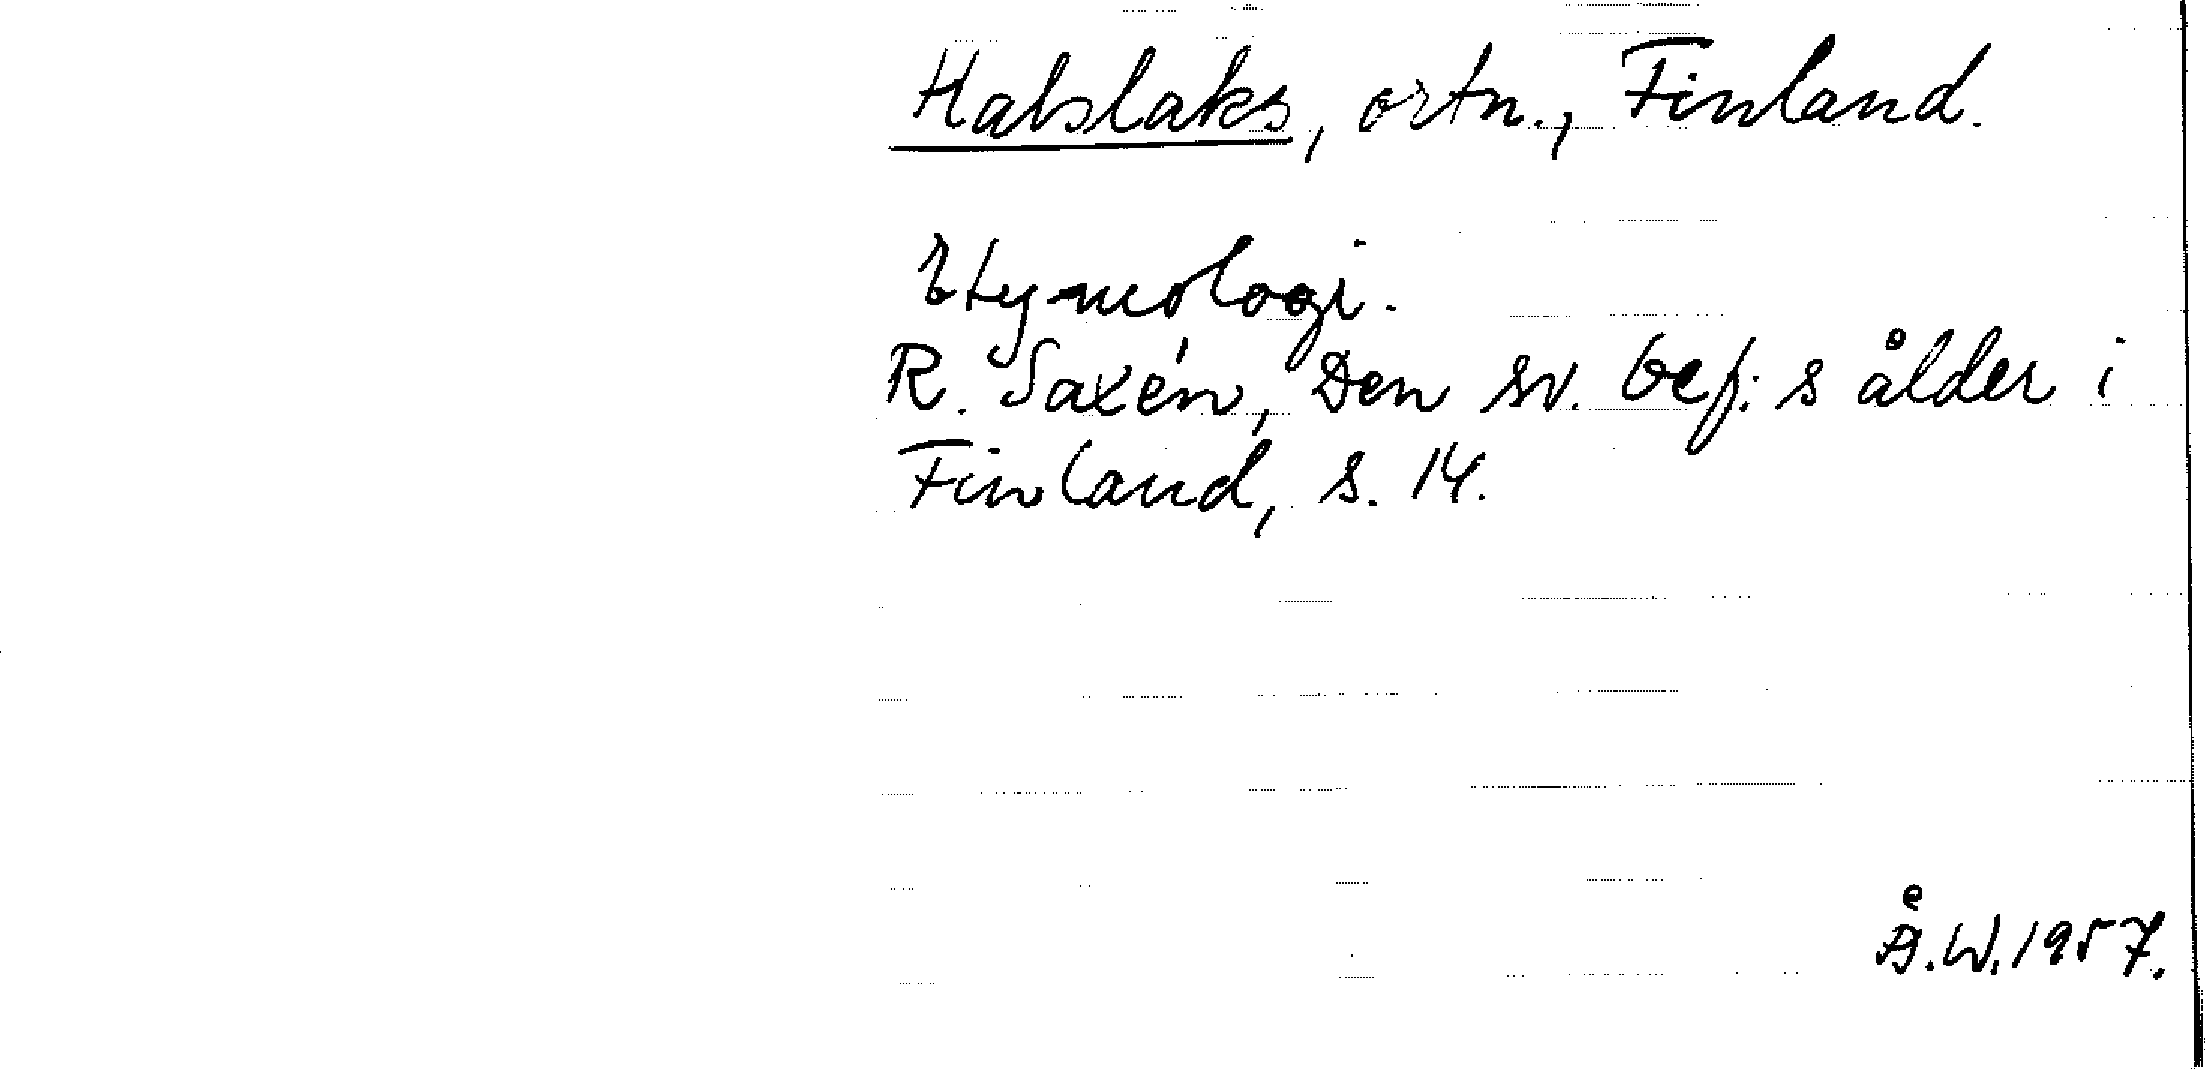 Halslaks, ortn., Finland.
Etymologi.
R. Saxén, Den sv. bef:s ålder i
Finland, s. 14.
Å.W. 1957.